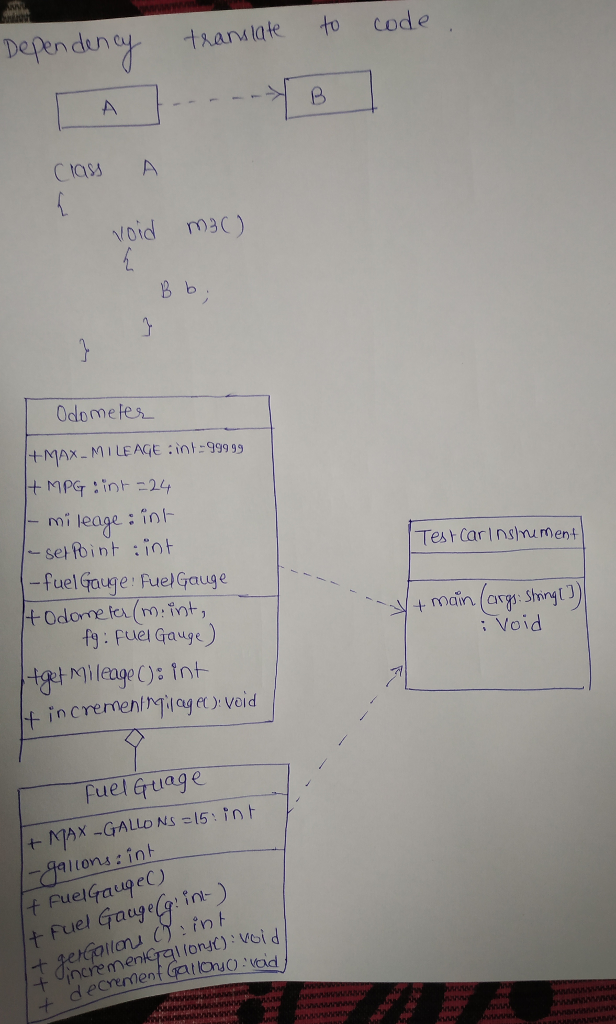 Dependency translate to code.
A
B
Class A
{
void m3()
{
B b;
}
}
Odometer
+MAX_MILEAGE : int = 99999
+ MPG : int = 24
- mileage : int
- setPoint : int
- fuelGauge : FuelGauge
+ Odometer(m: int,
fg : FuelGauge)
+getMileage() : int
+ incrementMilage() : void
TestCarInstrument
+ main (args: String[])
: Void
Fuel Guage
+ MAX_GALLONS = 15 : int
- gallons : int
+ FuelGauge()
+ Fuel Gauge(g: int)
+ getGallons () : int
+ incrementGallons() : void
+ decrementGallons() : void